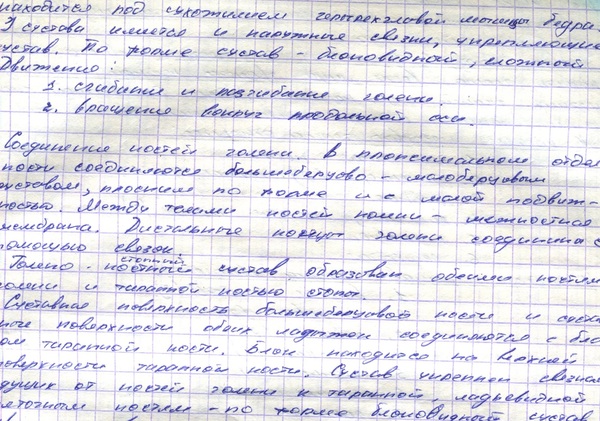 находится под сухожилием четырехглавой мышцы бедра.
У сустава имеются и наружные связки, укрепляющие
сустав. По форме сустав - блоковидный, сложный
Движения:
1. сгибание и разгибание голени.
2. вращение вокруг продольной оси.
Соединение костей голени. В проксимальном отделе
кости соединяются большеберцово - малоберцовым
суставом, плоским по форме и с малой подвиж-
ностью. Между телами костей голени - межкостная
мембрана. Дистальные концы голени соединены с
помощью связок
Голено - костный стопный сустав образован обеими костями
голени и таранной костью стопы.
Суставная поверхность большеберцовой кости и сустав
ные поверхности обеих лодыжек соединяются с бло
ком таранной кости. Блок находится на верхней
поверхности таранной кости. Сустав укреплен связками
идущих от костей голени к таранной, ладьевидной
пяточным костям - по форме блоковидный сустав